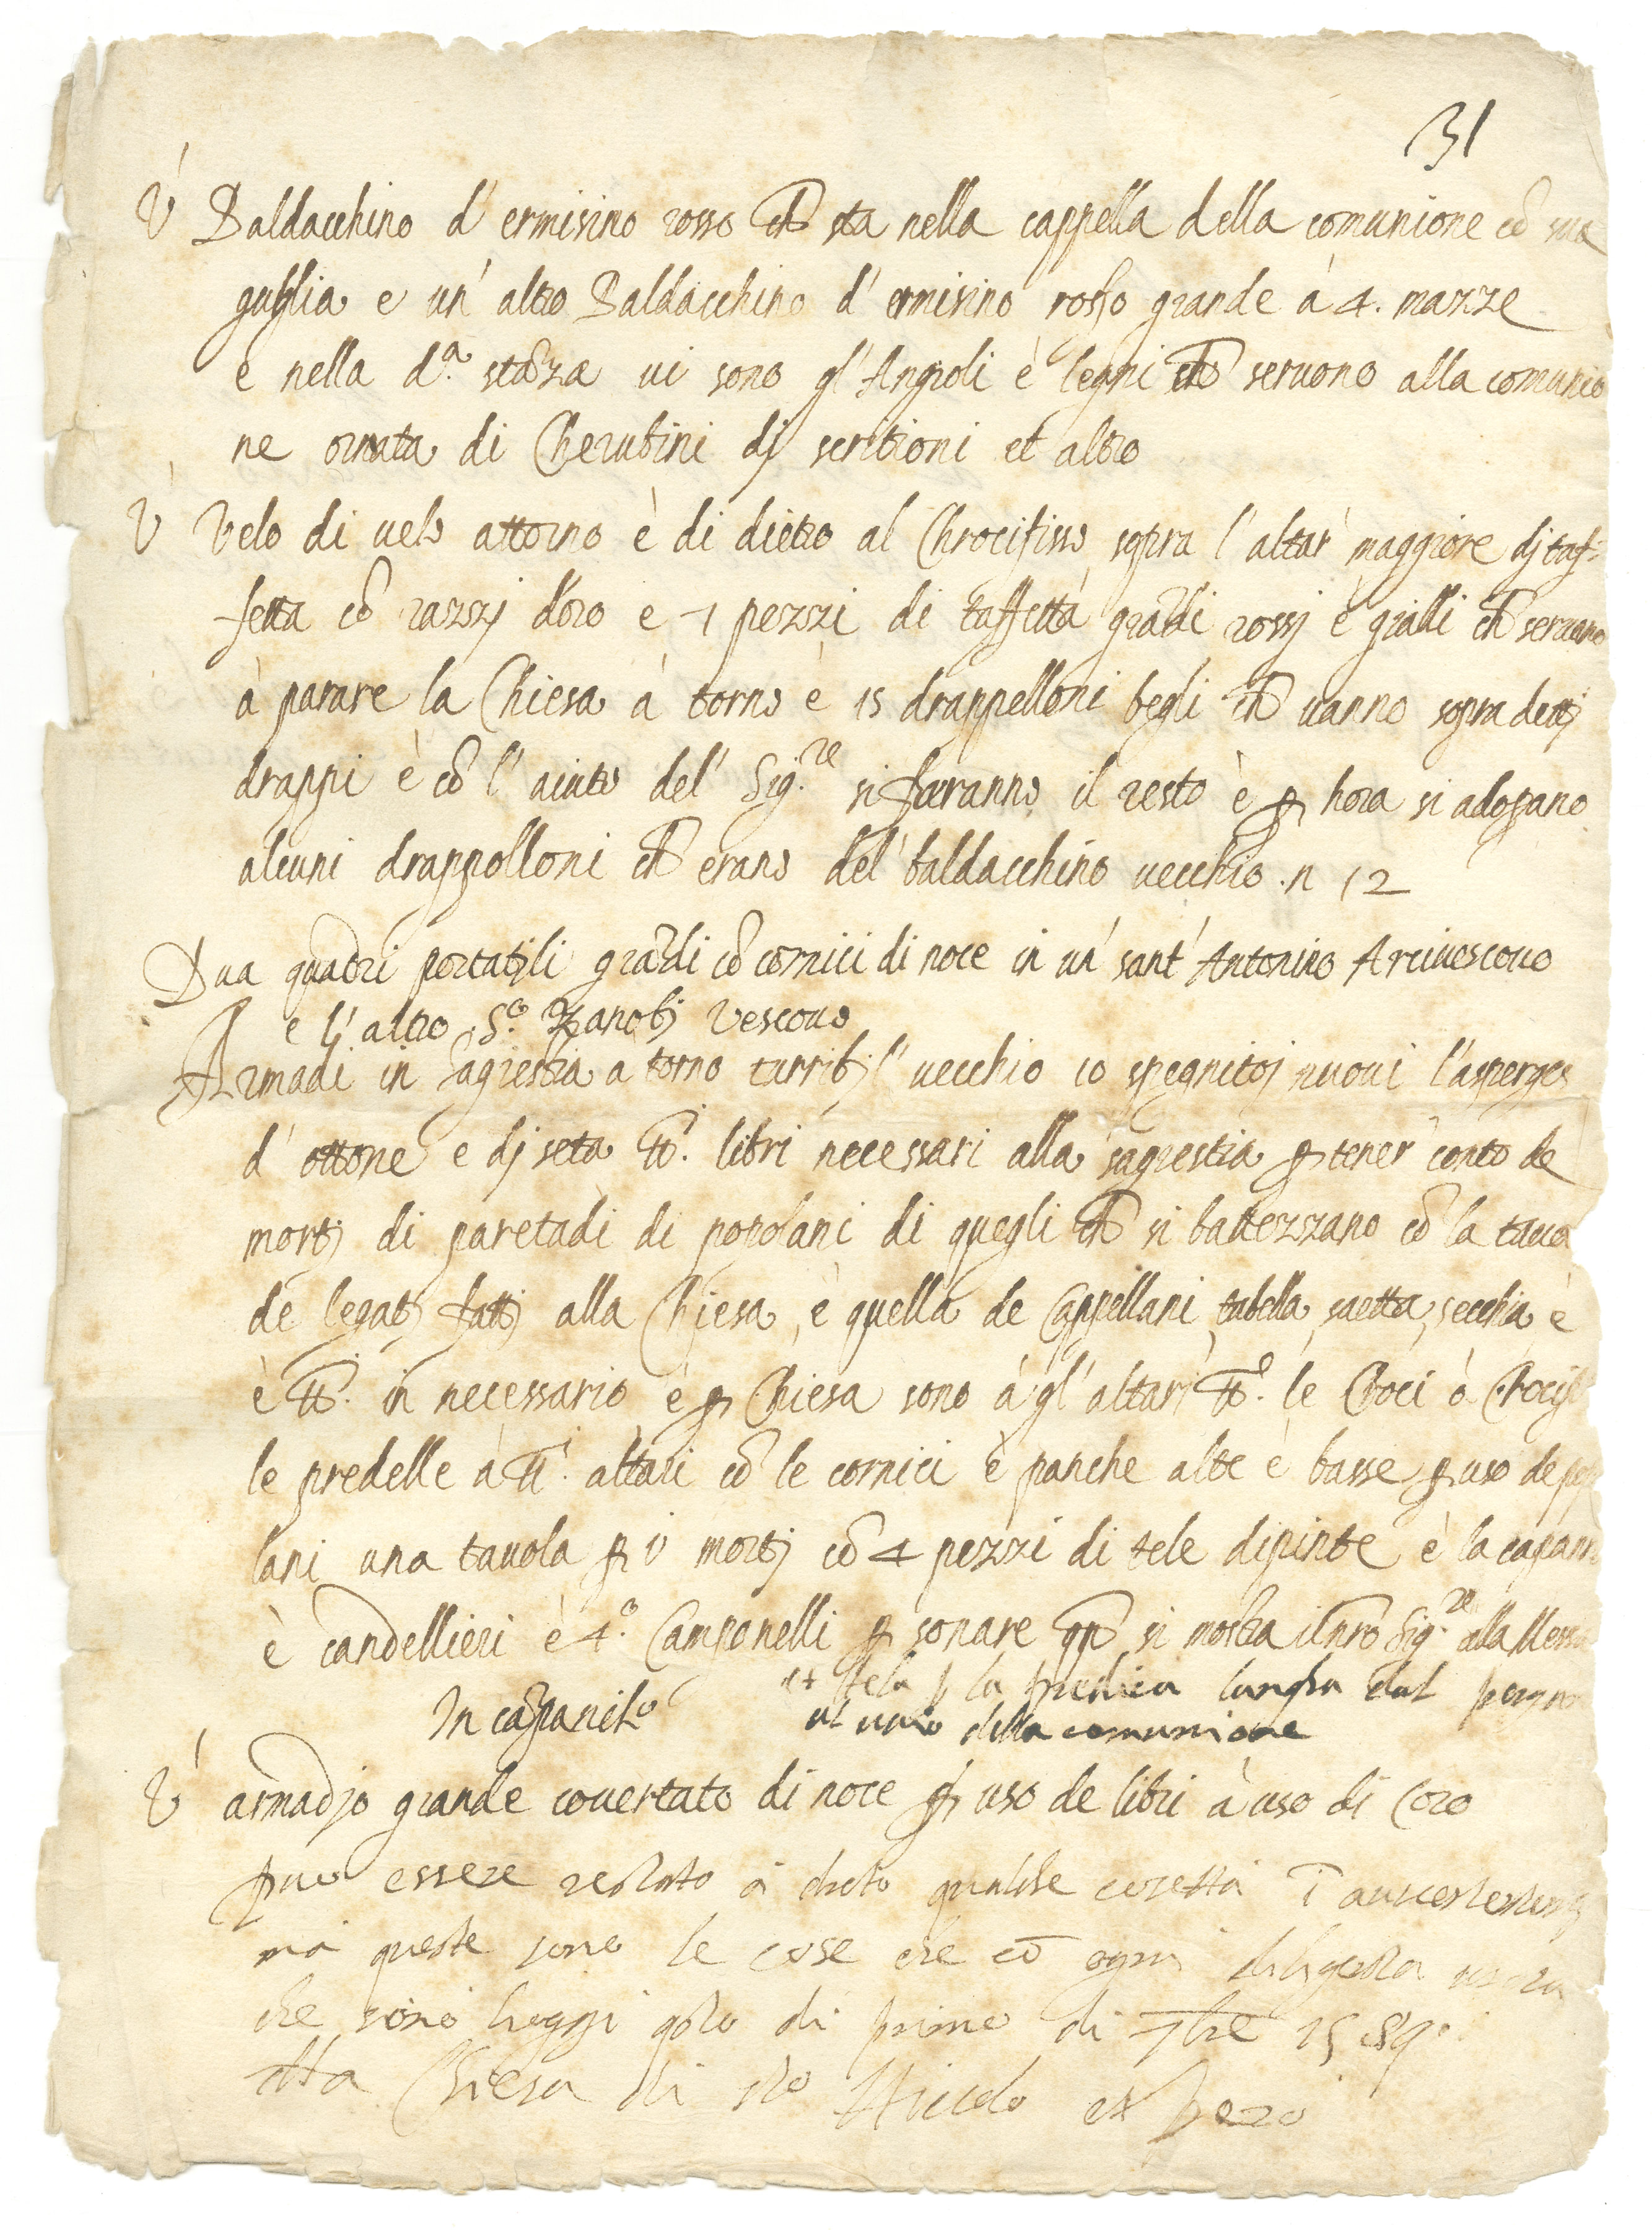 31
Ú Baldacchino d' ermisino rosso ch̃ sta nella cappella della comunione cõ sua
guglia e un' altro Baldacchino d' ermisino rosso grande á 4. mazze
e nella d.ª stãza ui sono gl' Angioli è legni ch̃ seruono alla comunio
ne ornata di Cherubini dj scritioni et altro
Ú Velo di uelo attorno è di dietro al Chrocifisso sopra l' altar maggiore dj taf=
fetta cõ razzj d'oro e 7 pezzi di taffettà grãdi rossj è gialli ch̃ seruano
à parare la Chiesa á torno è 15 drappelloni begli ch̃ uanno sopra dettj
drappi è cõ l' aiuto del' Sig.re si faranno il resto è ꝑ hora si adopano
alcuni drappolloni ch̃ erano del' baldacchino uecchio. n 12
Dua quadri portatjli grãdi cõ cornici di noce in un' sant' Antonino Arciuescouo
e l' altro S.º Zanobj Vescouo
Armadi in Sagrestia a torno turribjl' uecchio 10 spegnitoj nuoui l'asperges
d' ottone e dj seta tt.i libri necessari alla sagrestia ꝑ tener' conto de
mortj di paretadi di popolani di quegli ch̃ si battezzano cõ la tauo
de legatj fattj alla Chjesa, è quella de Cappellani, tabella, saetta, secchia è
è tt.i in necessario è ꝑ Chiesa sono á gl' altari tt.e le Croci ò Crocif
le predelle á tt.i altari cõ le cornici è panche alte è basse ꝑ uso de pop
lani una tauola ꝑ i' mortj cõ 4 pezzi di tele dipinte è la capann
è candellieri è 4.º Campanelli ꝑ sonare qñ si mostra il nrõ Sig.re alla Messa
et tela ꝑ la predica lungha dal pergam
In cãpanile al uaso della comunione
Ú armadjo grande couertato di noce ꝑ uso de libri à uso di Coro
puo essere restato á dreto qualche cosetta
ma queste sono le cose che cõ ogni diligenza
che sono hoggi q.to di primo di 7bre 1589.
Chiesa di s.to Niccolo